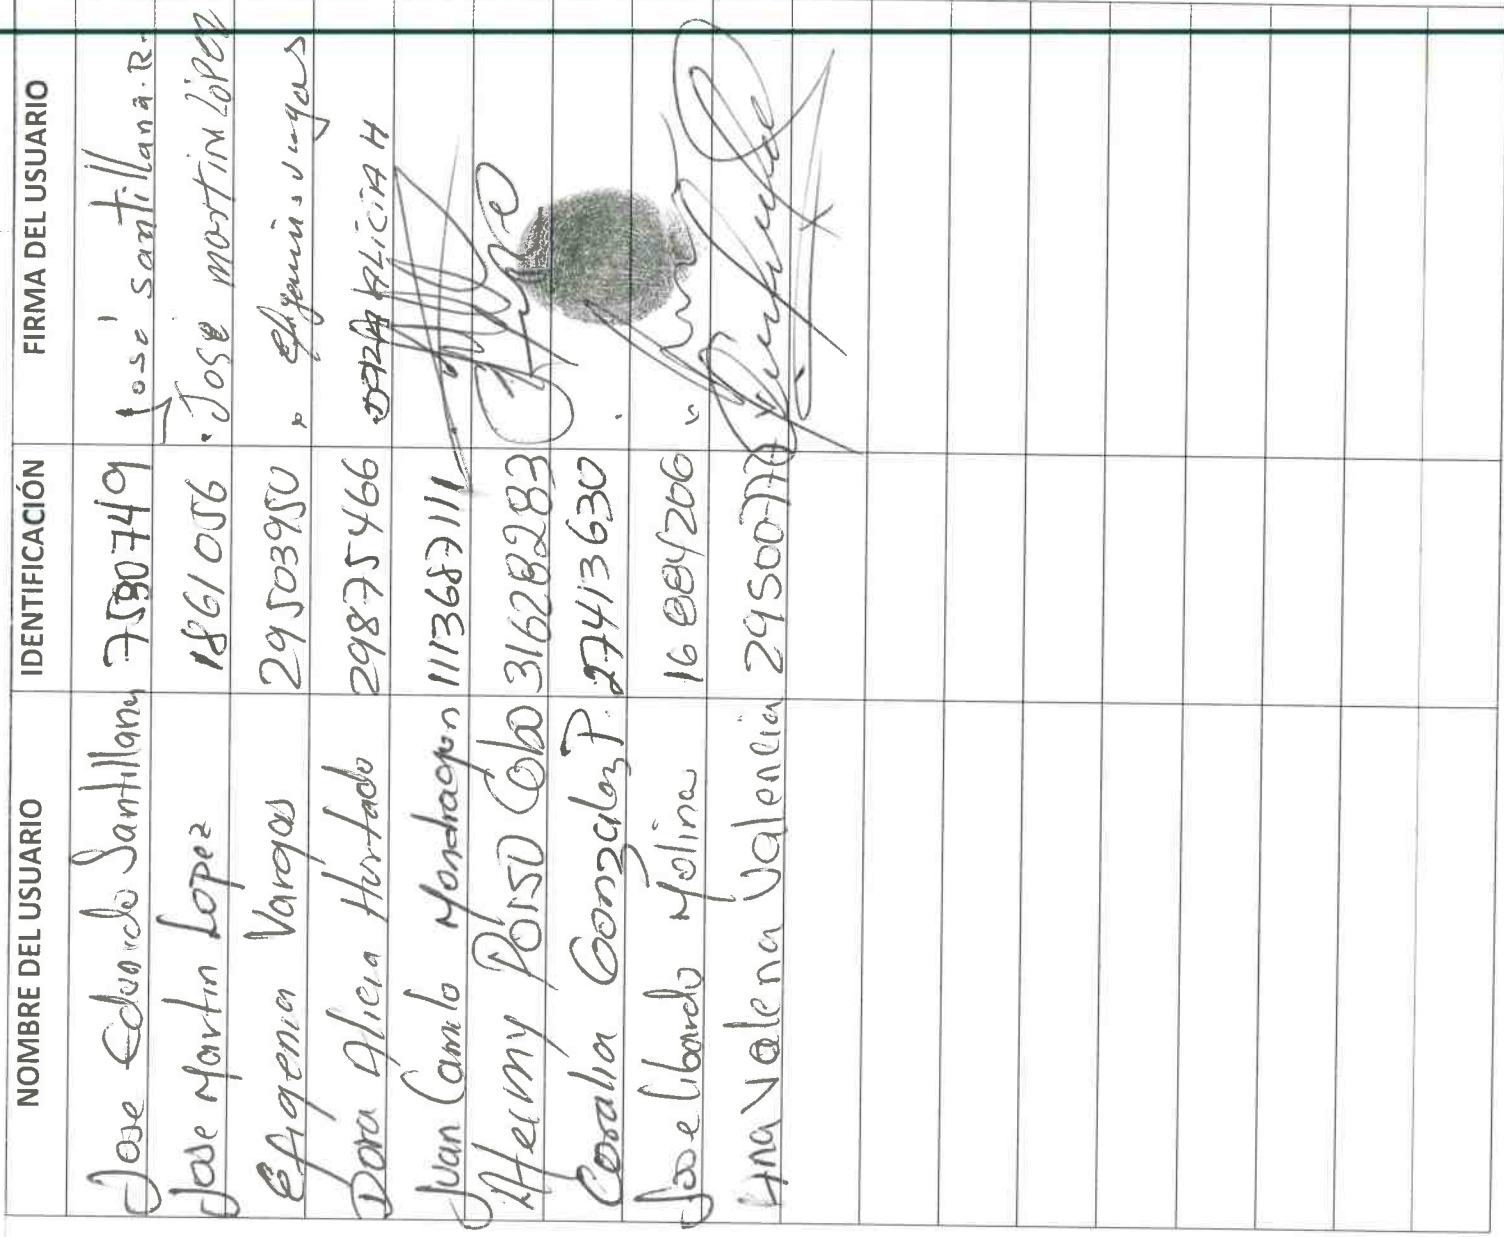 NOMBRE DEL USUARIO IDENTIFICACIÓN FIRMA DEL USUARIO
Jose Eduardo Santillana 7580749 José santillana.R.
Jose Martin Lopez 1861056 José martin López
Efigenia Vargas 29503950 efigenia vargas
Dora Alicia Hurtado 29875466 ALICIA H
Juan Camilo Mondragon 1113687111
Heimy Poiso Cobo 31628283
Coralia Gonzalez P. 27413630
Jose Libardo Molina 16884206
Ana Valena Valencia